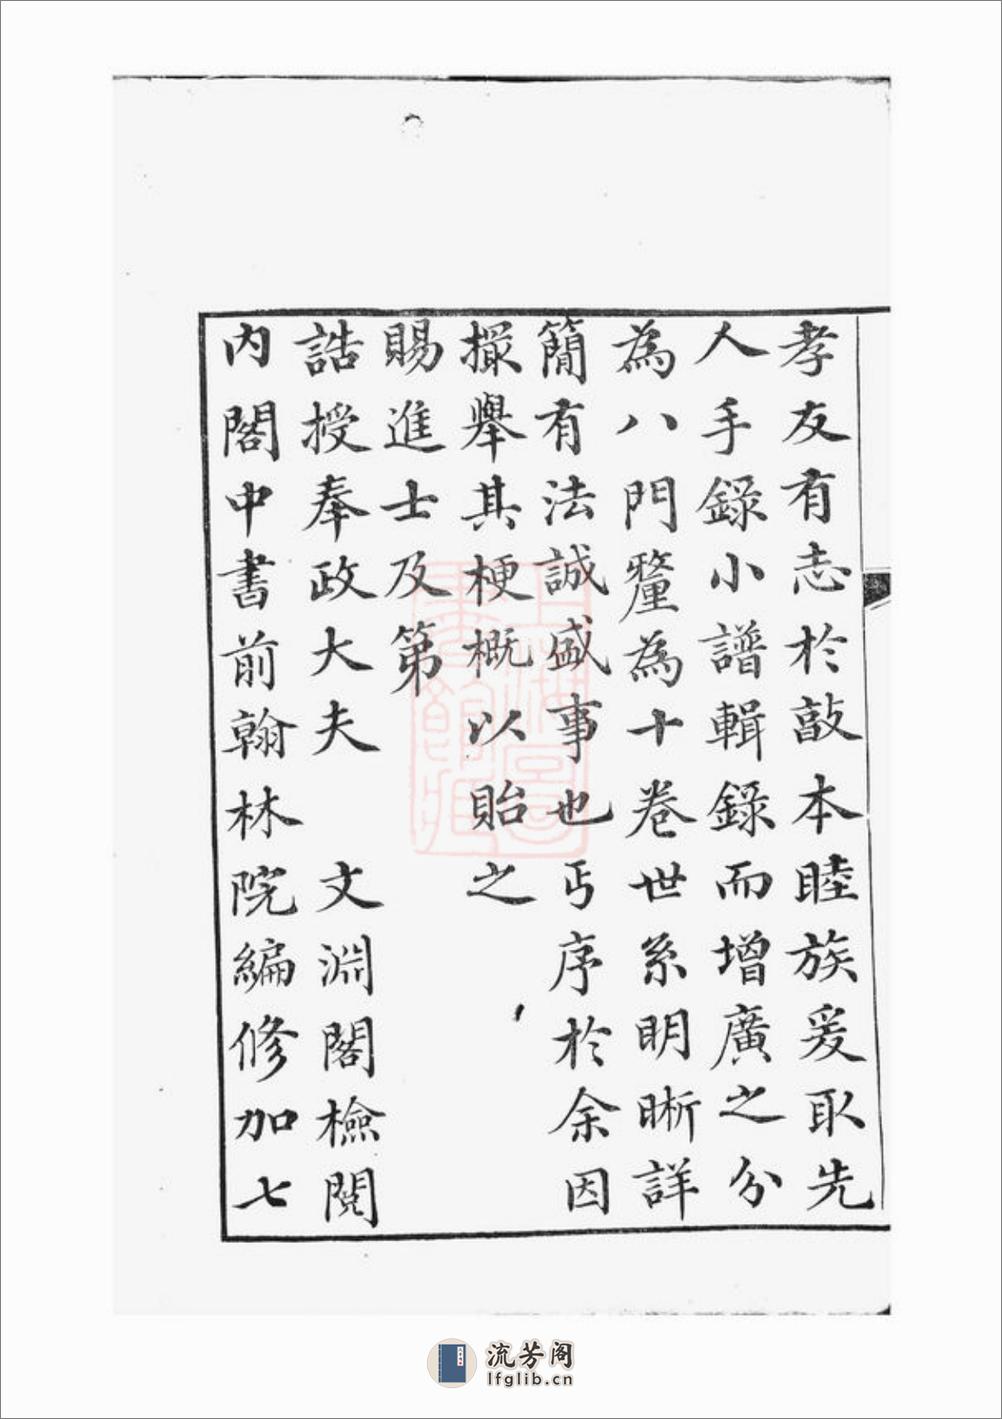 孝友有志於敲本睦族爰取先
人手錄小譜輯錄而增廣之分
為八門釐為十卷世系明晰詳
簡有法誠盛事也丐序於余因
撮舉其梗概以貽之
賜進士及第
誥授奉政大夫 文淵閣檢閱
內閣中書前翰林院編修加七
上海圖書館藏
流芳阁
lfglib.cn